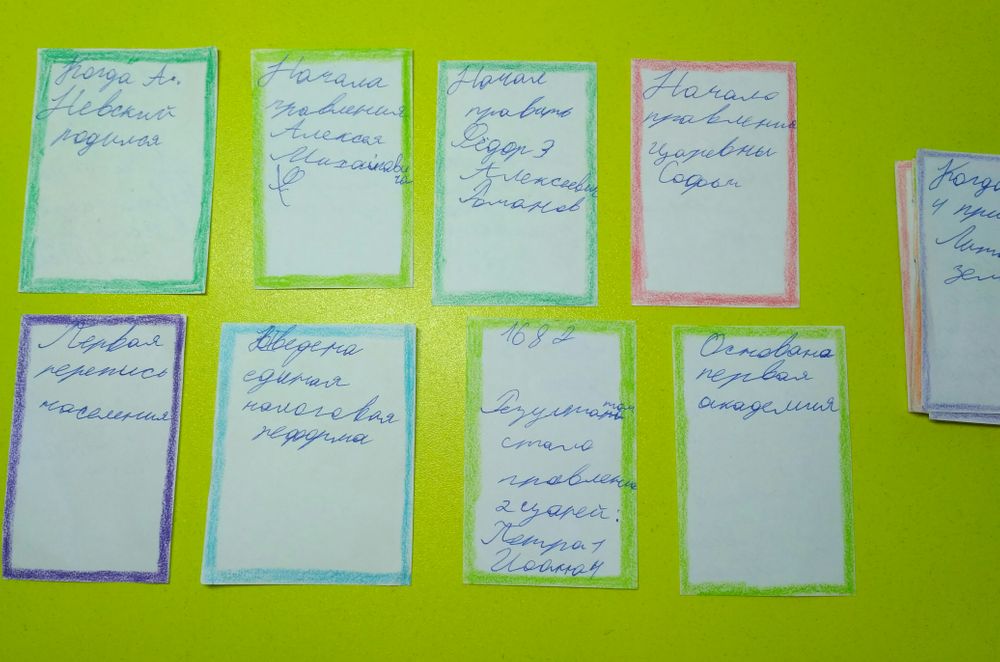 Когда Ал.
Невский
родился
Начала
правления
Алексея
Михайлови
ча
Начал
править
Фёдор 3
Алексеевич
Романов
Начало
правления
царевны
Софьи
Когда
Первая
перепись
населения
Введена
единая
налоговая
реформа
1682
Результатом
стало
правление
2 царей:
Петра 1
Иоанна 4
Основана
первая
академия